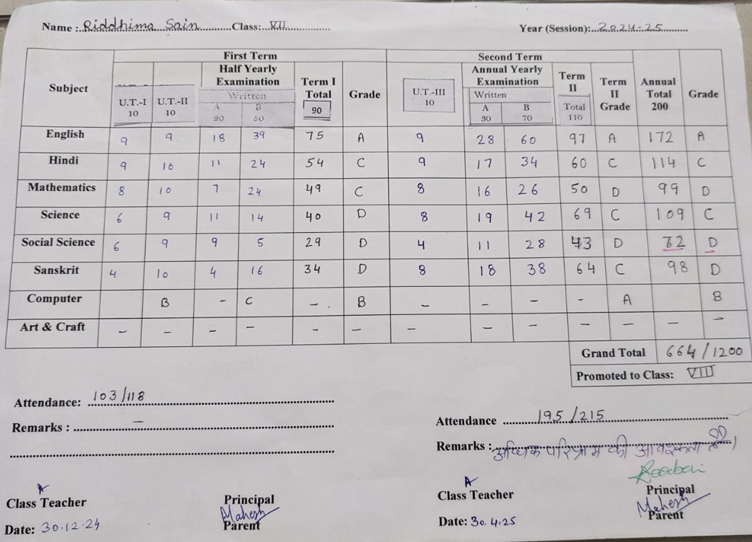 Name : Riddhima Sain Class: VII Year (Session): 2024-25
Subject First Term Second Term Annual Total 200 Grade
U.T.-I 10 U.T.-II 10 Half Yearly Examination Written A 30 B 60 Term I Total 90 Grade U.T.-III 10 Annual Yearly Examination Written A 30 B 70 Term II Total 110 Term II Grade
English 9 9 18 39 75 A 9 28 60 97 A 172 A
Hindi 9 10 11 24 54 C 9 17 34 60 C 114 C
Mathematics 8 10 7 24 49 C 8 16 26 50 D 99 D
Science 6 9 11 14 40 D 8 19 42 69 C 109 C
Social Science 6 9 9 5 29 D 4 11 28 43 D 72 D
Sanskrit 4 10 4 16 34 D 8 18 38 64 C 98 D
Computer B - C - B - - - - A B
Art & Craft - - - - - - - - - - - - -
Grand Total 664/1200
Promoted to Class: VIII
Attendance: 103/118
Remarks : -
Attendance 195/215
Remarks : अधिक परिश्रम की आवश्यकता है।
Class Teacher Principal
Mahesh
Parent
Date: 30.12.24
Class Teacher Principal
Mahesh
Parent
Date: 30.4.25